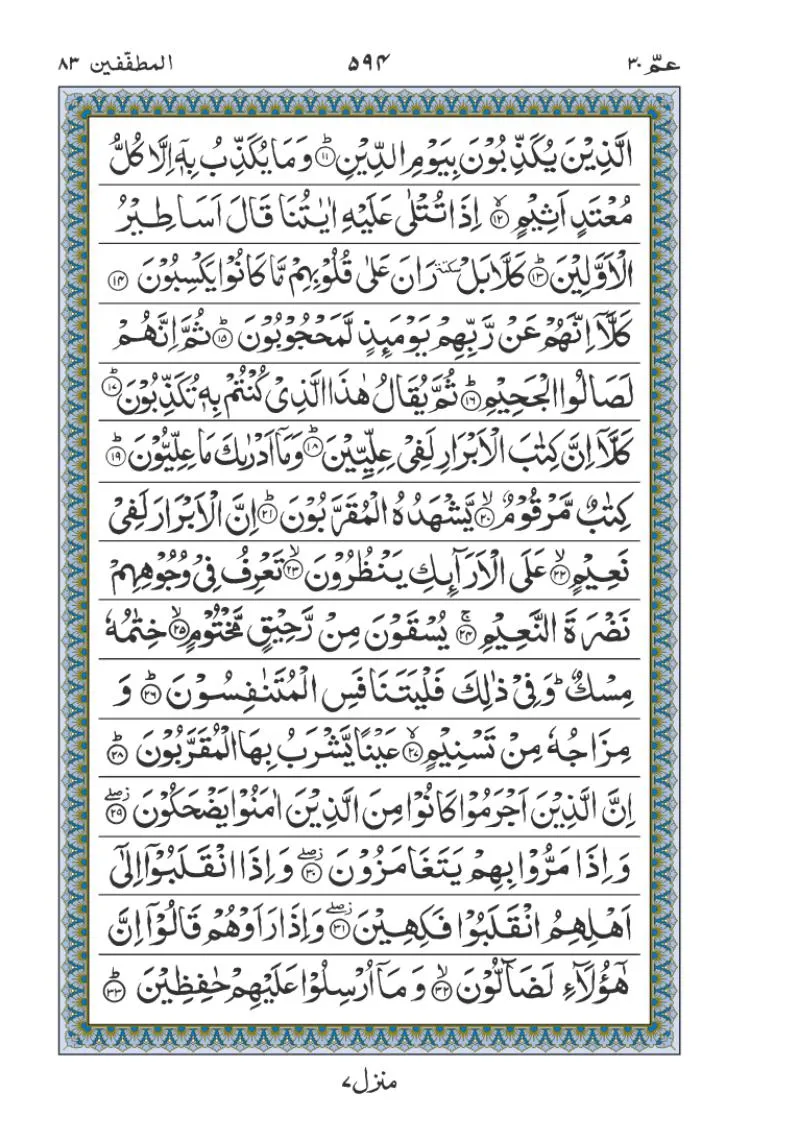 عمّ ۳۰ ۵۹۴ المطفّفین ۸۳
الَّذِیْنَ یُكَذِّبُوْنَ بِیَوْمِ الدِّیْنِ ؕ﴿۱۱﴾ وَ مَا یُكَذِّبُ بِهٖۤ اِلَّا كُلُّ
مُعْتَدٍ اَثِیْمٍ ۙ﴿۱۲﴾ اِذَا تُتْلٰی عَلَیْهِ اٰیٰتُنَا قَالَ اَسَاطِیْرُ
الْاَوَّلِیْنَ ؕ﴿۱۳﴾ كَلَّا بَلْ سكتة رَانَ عَلٰی قُلُوْبِهِمْ مَّا كَانُوْا یَكْسِبُوْنَ ﴿۱۴﴾
كَلَّاۤ اِنَّهُمْ عَنْ رَّبِّهِمْ یَوْمَىِٕذٍ لَّمَحْجُوْبُوْنَ ؕ﴿۱۵﴾ ثُمَّ اِنَّهُمْ
لَصَالُوا الْجَحِیْمِ ؕ﴿۱۶﴾ ثُمَّ یُقَالُ هٰذَا الَّذِیْ كُنْتُمْ بِهٖ تُكَذِّبُوْنَ ؕ﴿۱۷﴾
كَلَّاۤ اِنَّ كِتٰبَ الْاَبْرَارِ لَفِیْ عِلِّیِّیْنَ ؕ﴿۱۸﴾ وَ مَاۤ اَدْرٰىكَ مَا عِلِّیُّوْنَ ؕ﴿۱۹﴾
كِتٰبٌ مَّرْقُوْمٌ ۙ﴿۲۰﴾ یَّشْهَدُهُ الْمُقَرَّبُوْنَ ؕ﴿۲۱﴾ اِنَّ الْاَبْرَارَ لَفِیْ
نَعِیْمٍ ۙ﴿۲۲﴾ عَلَی الْاَرَآىِٕكِ یَنْظُرُوْنَ ۙ﴿۲۳﴾ تَعْرِفُ فِیْ وُجُوْهِهِمْ
نَضْرَةَ النَّعِیْمِ ۚ﴿۲۴﴾ یُسْقَوْنَ مِنْ رَّحِیْقٍ مَّخْتُوْمٍ ۙ﴿۲۵﴾ خِتٰمُهٗ
مِسْكٌ ؕ وَ فِیْ ذٰلِكَ فَلْیَتَنَافَسِ الْمُتَنٰفِسُوْنَ ؕ﴿۲۶﴾ وَ
مِزَاجُهٗ مِنْ تَسْنِیْمٍ ۙ﴿۲۷﴾ عَیْنًا یَّشْرَبُ بِهَا الْمُقَرَّبُوْنَ ؕ﴿۲۸﴾
اِنَّ الَّذِیْنَ اَجْرَمُوْا كَانُوْا مِنَ الَّذِیْنَ اٰمَنُوْا یَضْحَكُوْنَ ؗۖ﴿۲۹﴾
وَ اِذَا مَرُّوْا بِهِمْ یَتَغَامَزُوْنَ ؗۖ﴿۳۰﴾ وَ اِذَا انْقَلَبُوْۤا اِلٰۤی
اَهْلِهِمُ انْقَلَبُوْا فَكِهِیْنَ ؗۖ﴿۳۱﴾ وَ اِذَا رَاَوْهُمْ قَالُوْۤا اِنَّ
هٰۤؤُلَآءِ لَضَآلُّوْنَ ۙ﴿۳۲﴾ وَ مَاۤ اُرْسِلُوْا عَلَیْهِمْ حٰفِظِیْنَ ؕ﴿۳۳﴾
منزل ۷